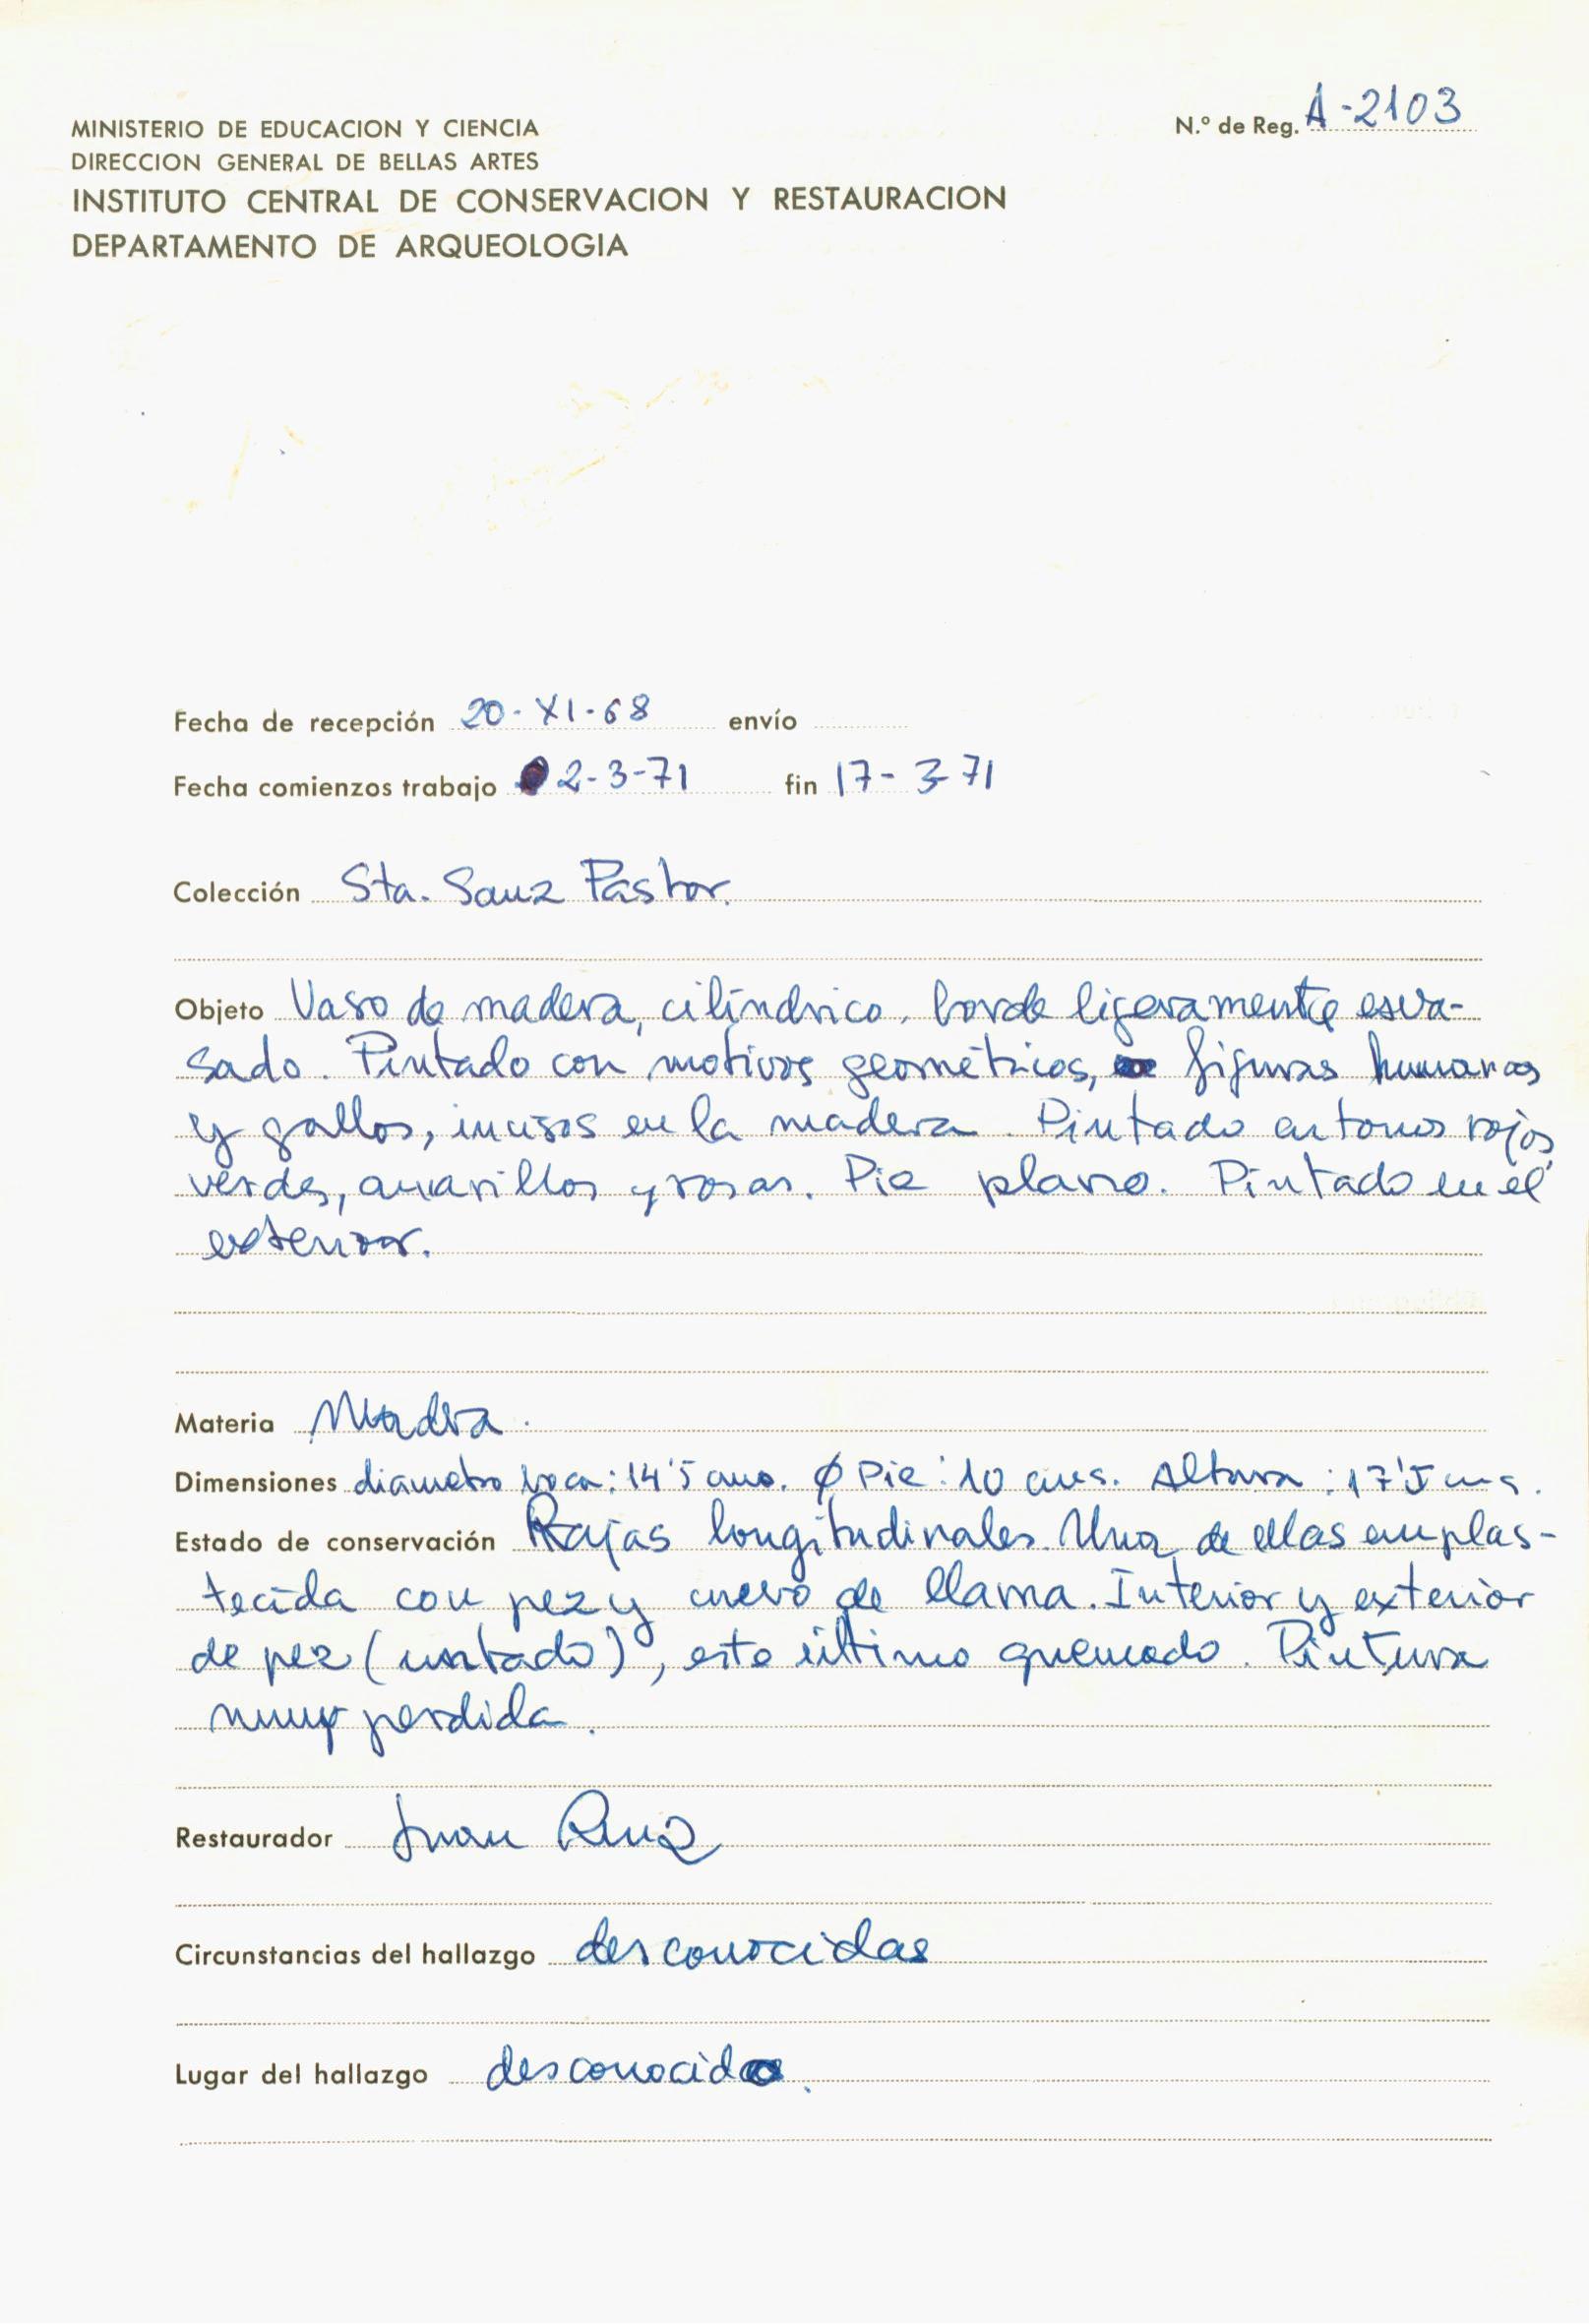 MINISTERIO DE EDUCACION Y CIENCIA
N.º de Reg. A-2103
DIRECCION GENERAL DE BELLAS ARTES
INSTITUTO CENTRAL DE CONSERVACION Y RESTAURACION
DEPARTAMENTO DE ARQUEOLOGIA
Fecha de recepción 20-XI-68 envío
Fecha comienzos trabajo 2-3-71 fin 17-3-71
Colección Sta. Sanz Pastor.
Objeto Vaso de madera, cilíndrico, borde ligeramente esva-
sado. Pintado con motivos geométricos, figuras humanas
y gallos, incisos en la madera. Pintado en tonos rojos,
verdes, amarillos y rosas. Pie plano. Pintado en el
exterior.
Materia Madera.
Dimensiones diametro boca: 14'5 cms. Ø Pie: 10 cms. Altura: 17'5 cms.
Estado de conservación Rajas longitudinales. Una de ellas emplas-
tecida con pez y cuero de llama. Interior y exterior
de pez (untado), este último quemado. Pintura
muy perdida.
Restaurador Juan Ruiz
Circunstancias del hallazgo desconocidas
Lugar del hallazgo desconocido.